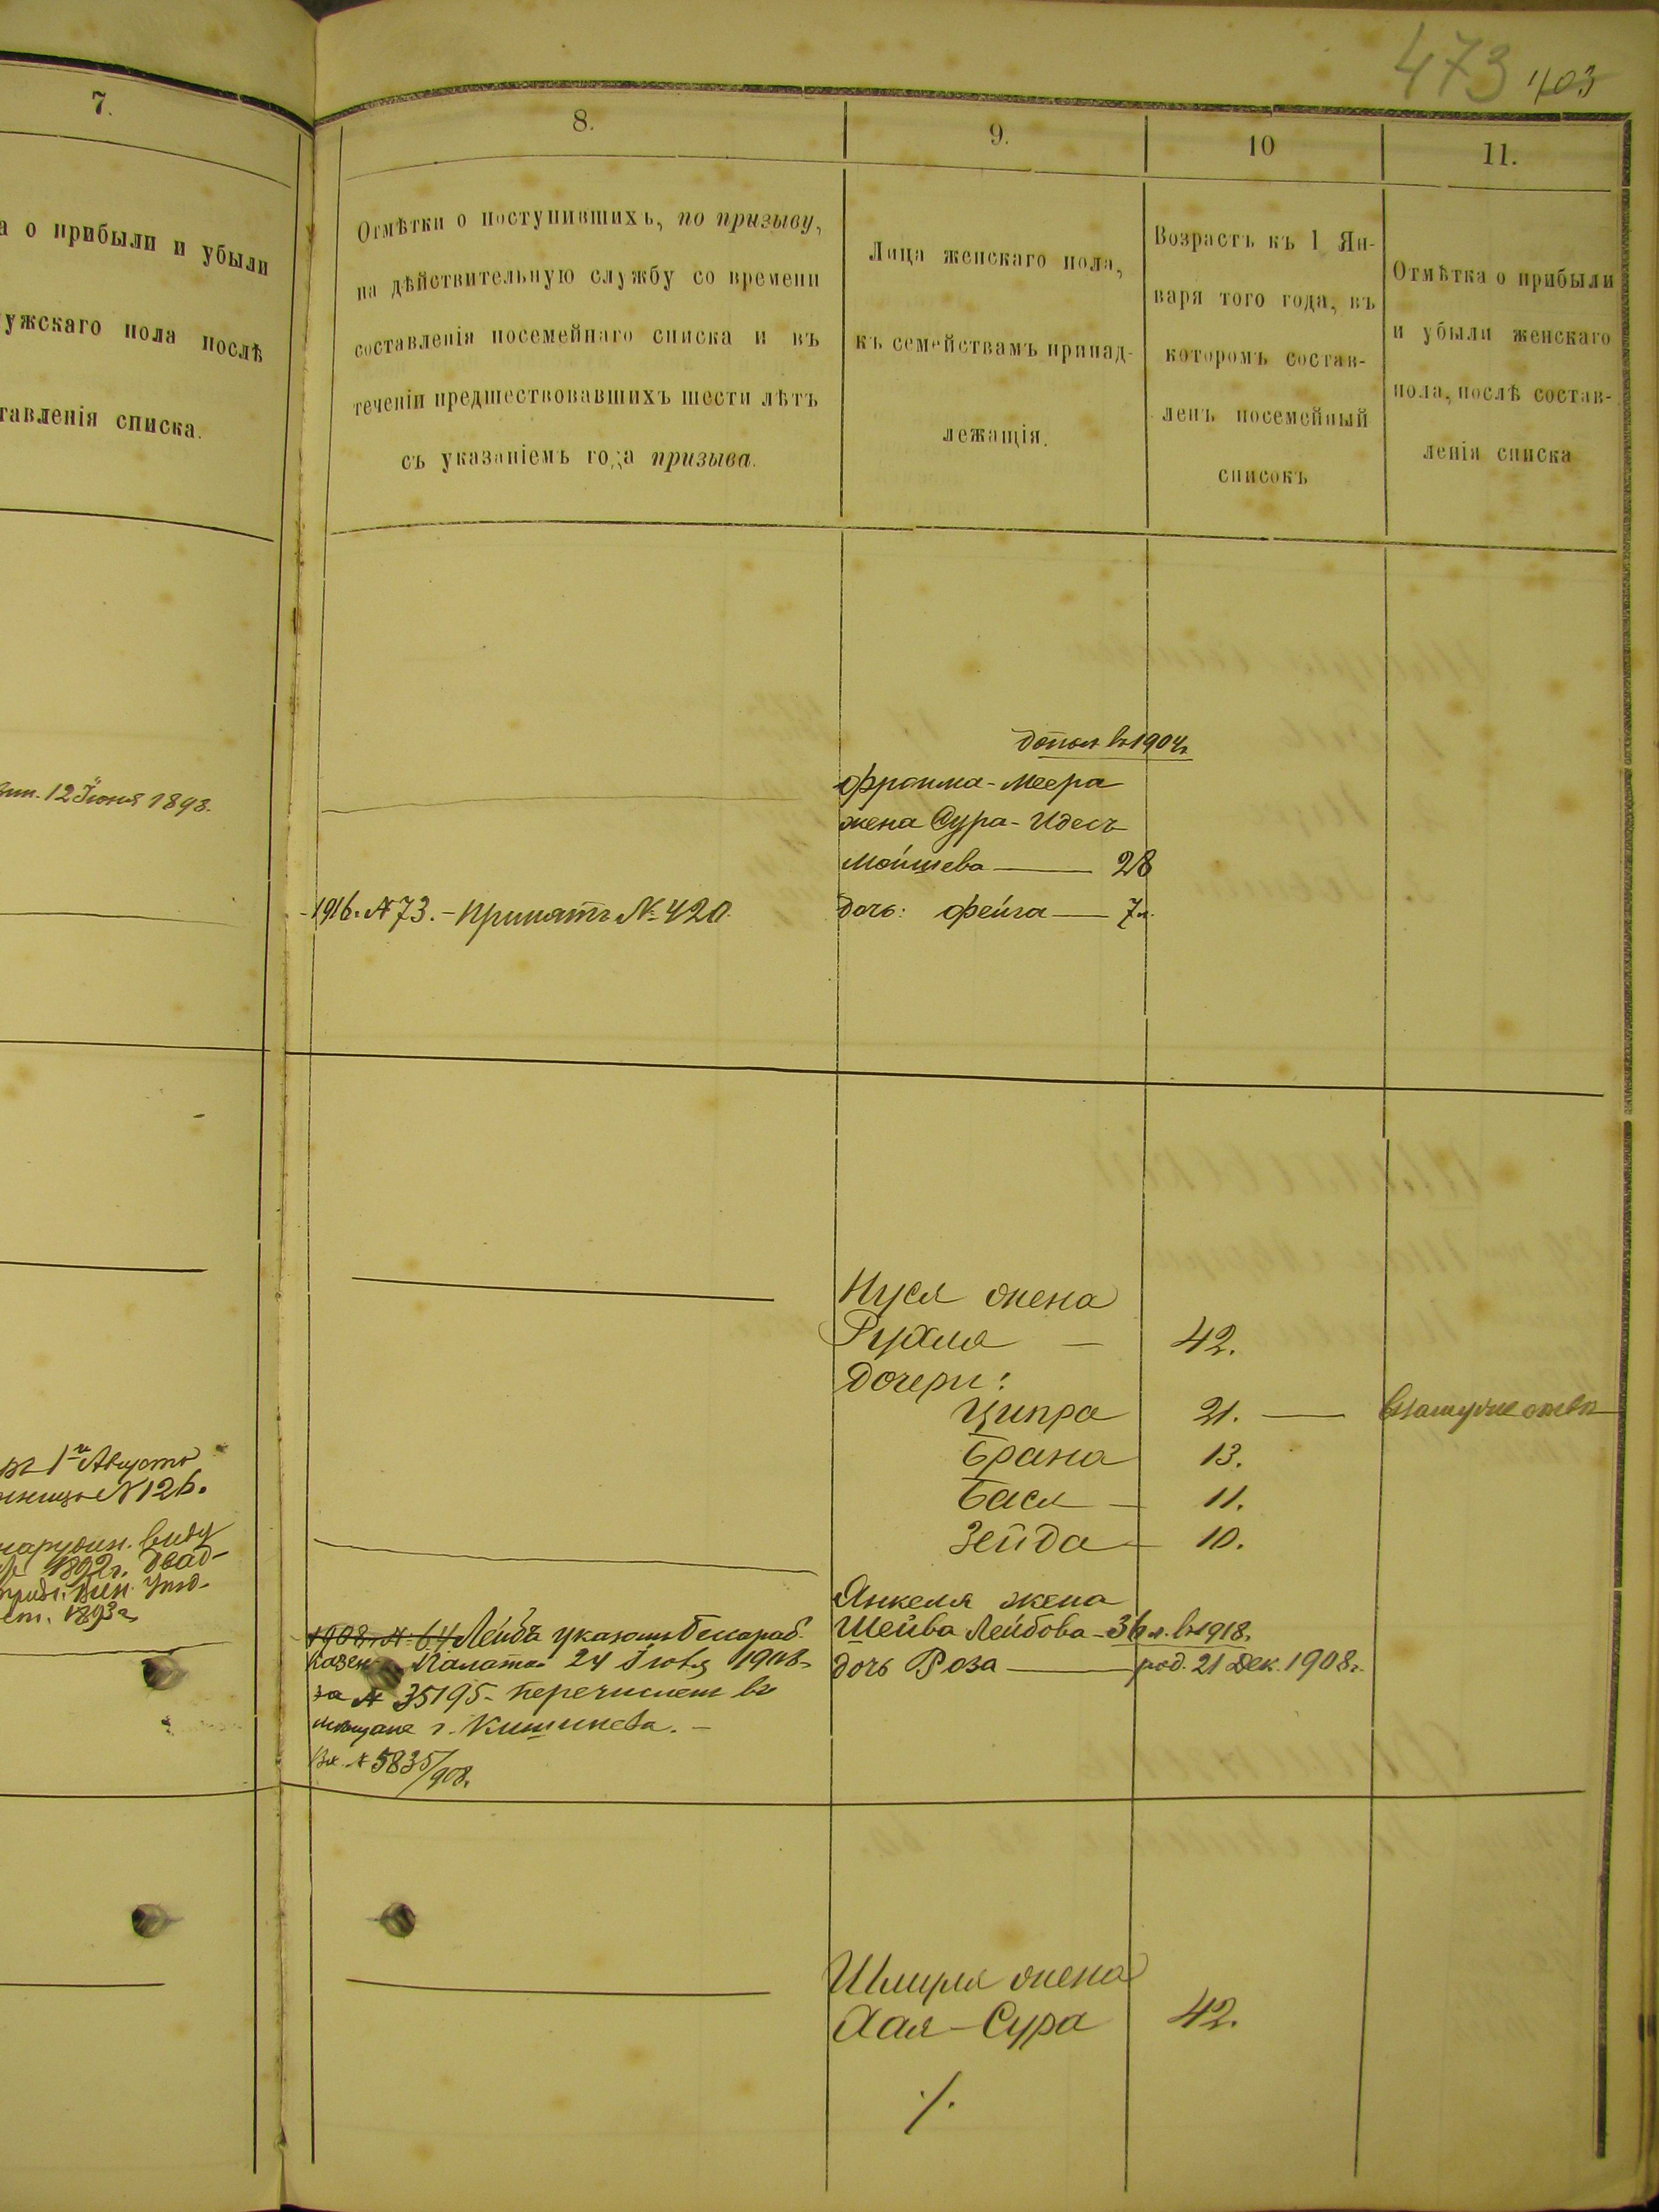 473 403
7.
а о прибыли и убыли
ужскаго пола послѣ
тавленія списка.
12 Іюня 1898.
1го Августа
№ 126.
наружн. виду
1892 г. двад-
1893 г.
8.
Отмѣтки о поступившихъ, по призыву,
на дѣйствительную службу со времени
составленія посемейнаго списка и въ
теченіи предшествовавшихъ шести лѣтъ
съ указаніемъ года призыва.
1916. № 73. – Принятъ № 420.
1908 г. № 64 Лейба указомъ Бессараб.
Казен. Палаты 24 1908 г.
за № 35195 – перечислен въ
мѣщане г. Кишинева. –
Вх. № 5835/908.
9.
Лица женскаго пола,
къ семействамъ принад-
лежащія.
допол въ 1904 г.
Фроима-Меера
жена Сура-Идесъ
Мойшева — 28
дочь: Фейга — 7 л.
Нуся жена
Рухля — 42.
Дочери:
Ципра 21. —
Брана 13.
Бася — 11.
Зейда — 10.
Янкеля жена
Шейва Лейбова – 36 л. въ 1918 г.
дочь Роза — род. 21 Дек. 1908 г.
Шмуля жена
Хая-Сура 42.
⁒
10
Возрастъ къ 1 Ян-
варя того года, въ
которомъ состав-
ленъ посемейный
списокъ
11.
Отмѣтка о прибыли
и убыли женскаго
пола, послѣ состав-
ленія списка